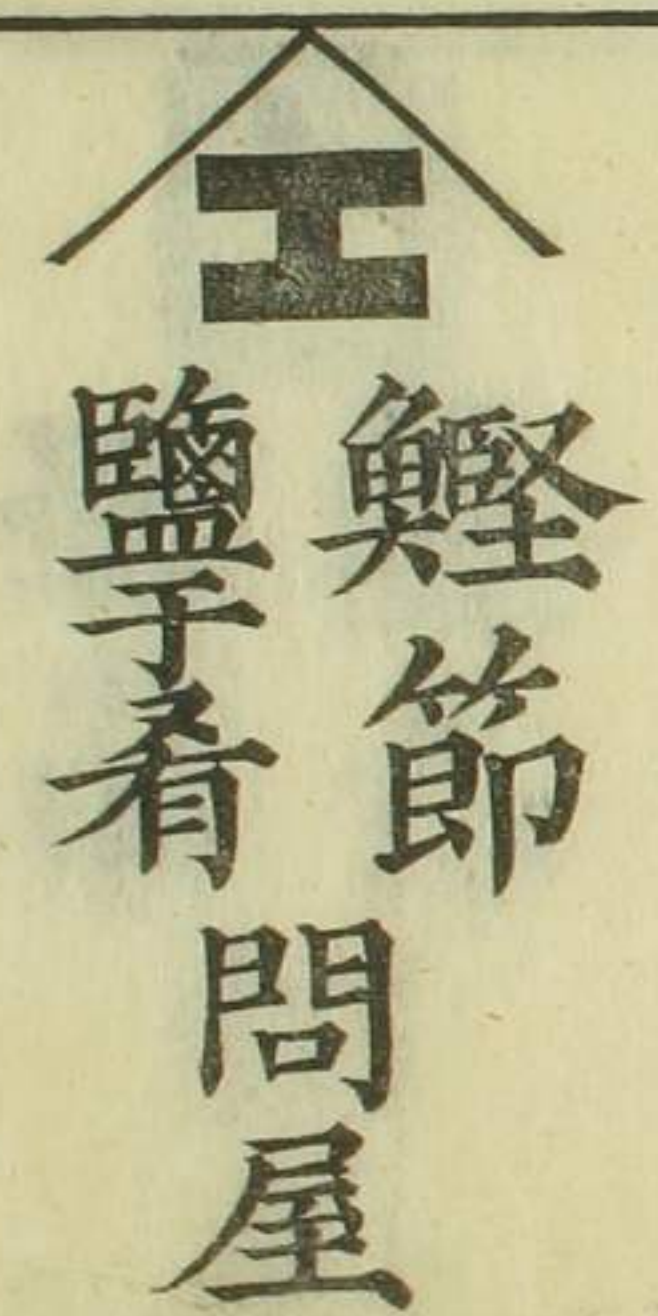 工
鰹節
鹽干肴
問屋